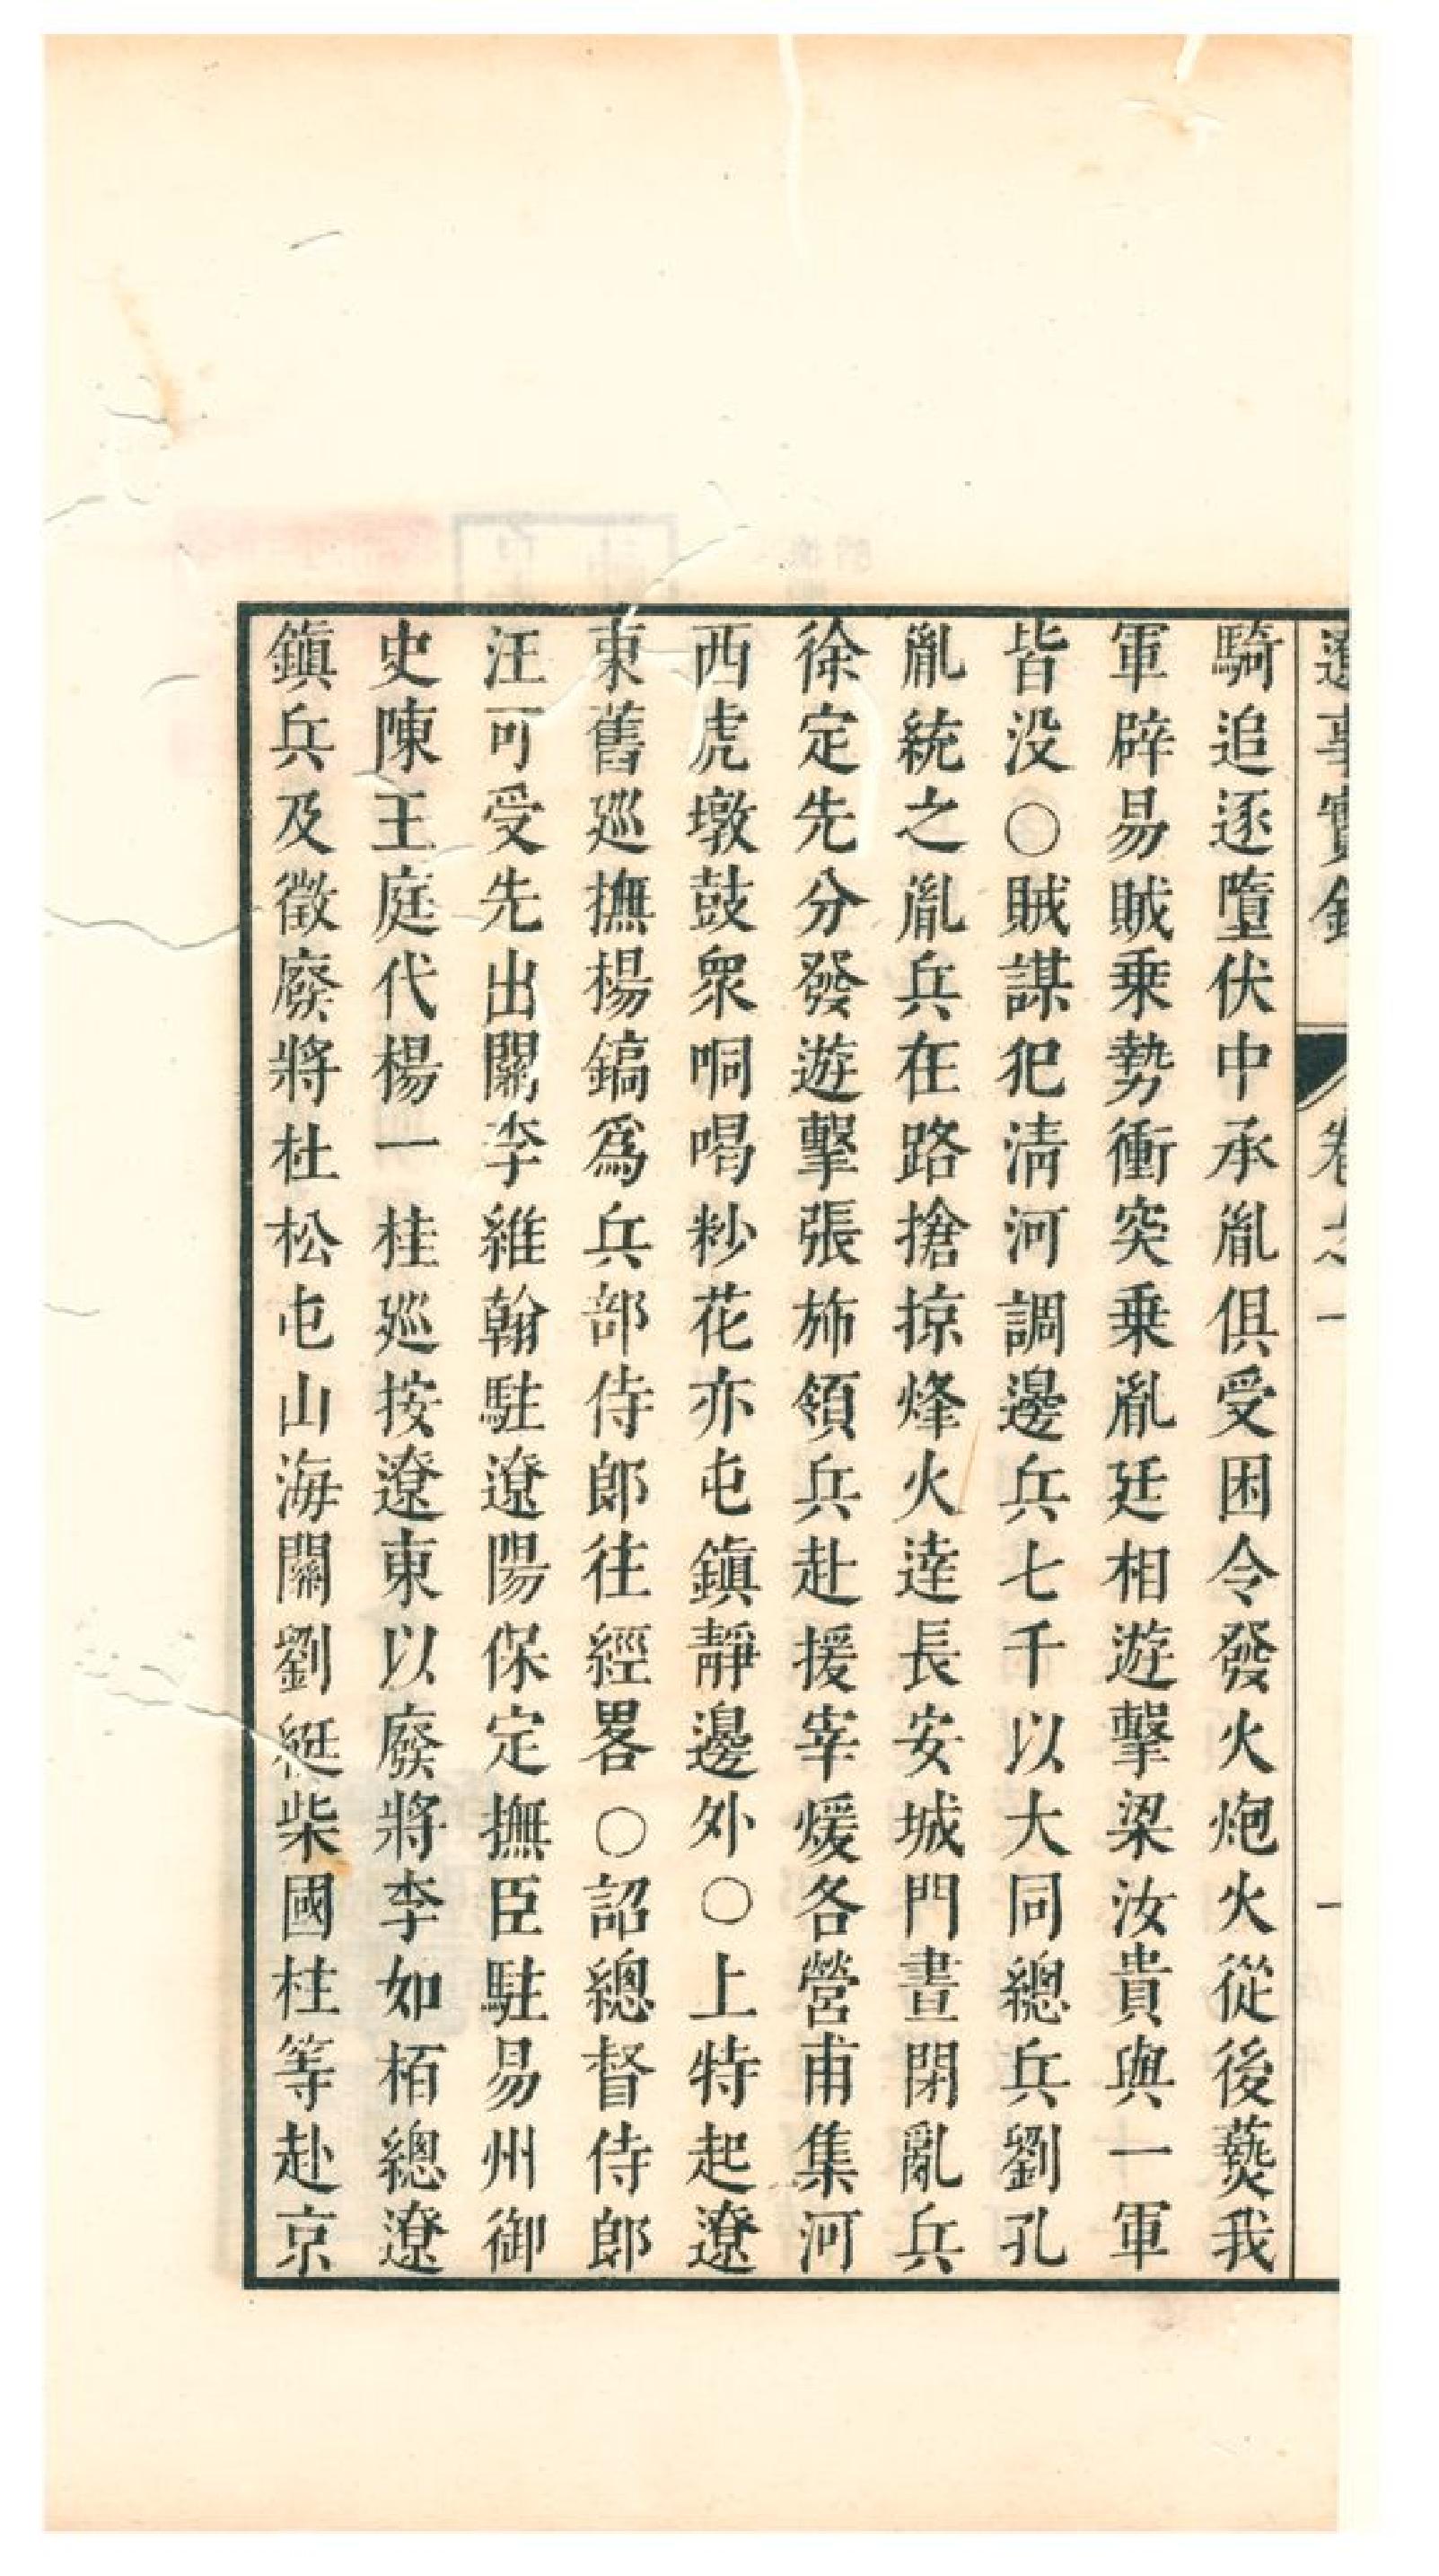 遼事實錄 卷之一
騎追逐墮伏中承胤俱受困令發火炮火從後爇我
軍辟易賊乗勢衝突乗胤廷相遊擊梁汝貴與一軍
皆没○賊謀犯淸河調邊兵七千以大同總兵劉孔
胤統之胤兵在路搶掠烽火達長安城門晝閉亂兵
徐定先分發遊擊張斾領兵赴援宰煖各營甫集河
西虎墩鼓衆哃喝粆花亦屯鎮靜邊外○上特起遼
東舊廵撫楊鎬爲兵部侍郎徃經畧○詔總督侍郎
汪可受先出關李維翰駐遼陽保定撫臣駐易州御
史陳王庭代楊一桂廵按遼東以廢將李如栢總遼
鎮兵及徵廢將杜松屯山海關劉綎柴國柱等赴京